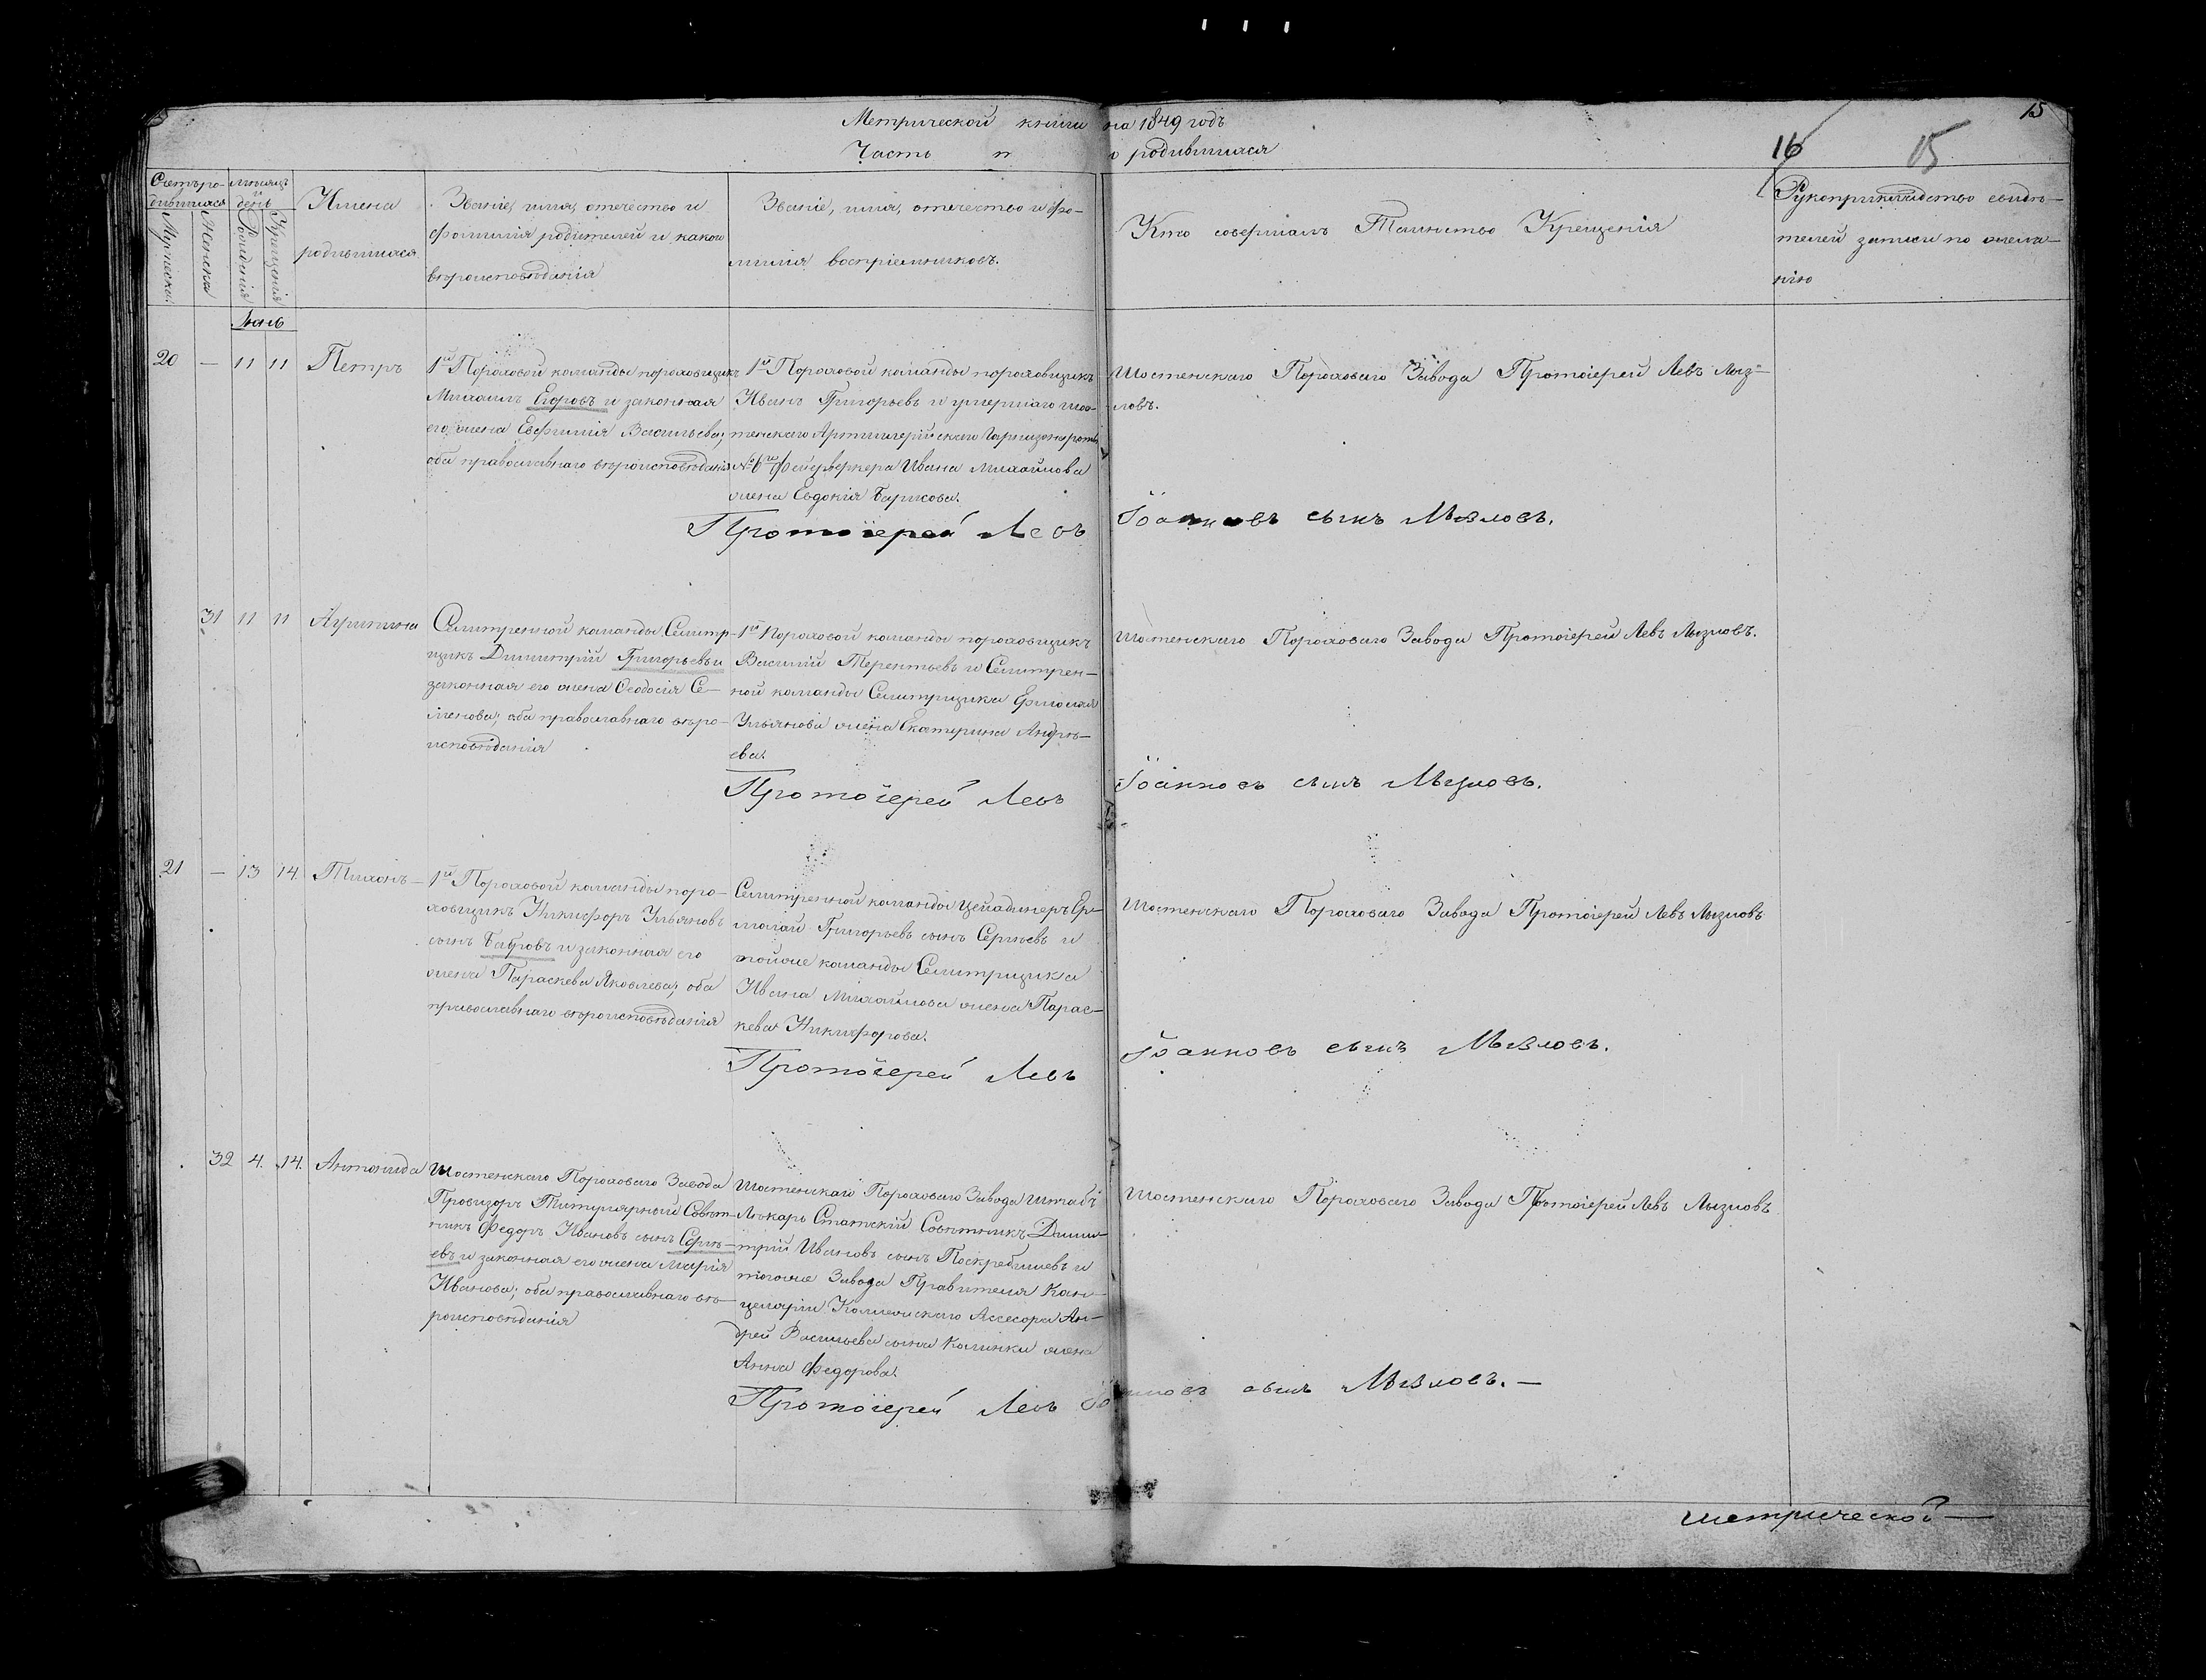 Метрической книги на 1849 годъ
Часть п о родившихся
15
16
15
Счетъ ро-
дившихся
Мужеска
Женска
мѣсяцъ и
день
Рожденія
Крещенія
Имена
родившихся
Званіе, имя, отечество и
фамилія родителей и какого
вѣроисповѣданія
Званіе, имя, отечество и фа-
милія воспріемниковъ.
Кто совершалъ Таинство Крещенія
Рукоприкладство свидѣ-
телей записи по жела-
нію
20 — 11 11 Петръ
1й Пороховой команды пороховщикъ
Михаилъ Егоровъ и законная
его жена Евфимія Васильева;
оба православнаго вѣроисповѣданія
1й Пороховой команды пороховщикъ
Иванъ Григорьевъ и умершаго шос-
тенскаго Артиллерійскаго Гарнизона роты
№ 6го фейерверкера Ивана Михайлова
жена Евдокія Борисова.
Шостенскаго Пороховаго Завода Протоіерей Левъ Мыз-
ловъ.
Протоіерей Левъ Іоанновъ сынъ Мызловъ.
31 11 11 Агрипина
Селитренной команды Селитр-
щикъ Димитрій Григорьевъ и
законная его жена Ѳеодосія Се-
менова; оба православнаго вѣро-
исповѣданія
1й Пороховой команды пороховщикъ
Василій Терентьевъ и Селитрен-
ной команды Селитрщика Ермолая
Ульянова жена Екатерина Андрѣ-
ева.
Шостенскаго Пороховаго Завода Протоіерей Левъ Мызловъ.
Протоіерей Левъ Іоанновъ сынъ Мызловъ.
21 — 13 14. Тихонъ
1й Пороховой команды поро-
ховщикъ Никифоръ Ульяновъ
сынъ Бабровъ и законная его
жена Параскева Яковлева; оба
православнаго вѣроисповѣданія
Селитренной команды Цейхдинеръ Ер-
молай Григорьевъ сынъ Сергѣевъ и
тойже команды Селитрщика
Ивана Михайлова жена Парас-
кева Никифорова.
Шостенскаго Пороховаго Завода Протоіерей Левъ Мызловъ
Протоіерей Левъ Іоанновъ сынъ Мызловъ.
32 4. 14. Антонида
Шостенскаго Пороховаго Завода
Провизоръ Титулярный Совѣт-
никъ Федоръ Ивановъ сынъ Сергѣ-
евъ и законная его жена Марія
Иванова; оба православнаго вѣ-
роисповѣданія
Шостенскаго Пороховаго Завода Штабъ
Лѣкарь Статскій Совѣтникъ Дими-
трій Ивановъ сынъ Поскребышевъ и
тогоже Завода Правителя Кан-
целяріи Коллежскаго Ассесора Ан-
дрея Васильева сына Калинки жена
Анна Федорова.
Шостенскаго Пороховаго Завода Протоіерей Левъ Мызловъ
Протоіерей Левъ Іоанновъ сынъ Мызловъ. —
метрической —